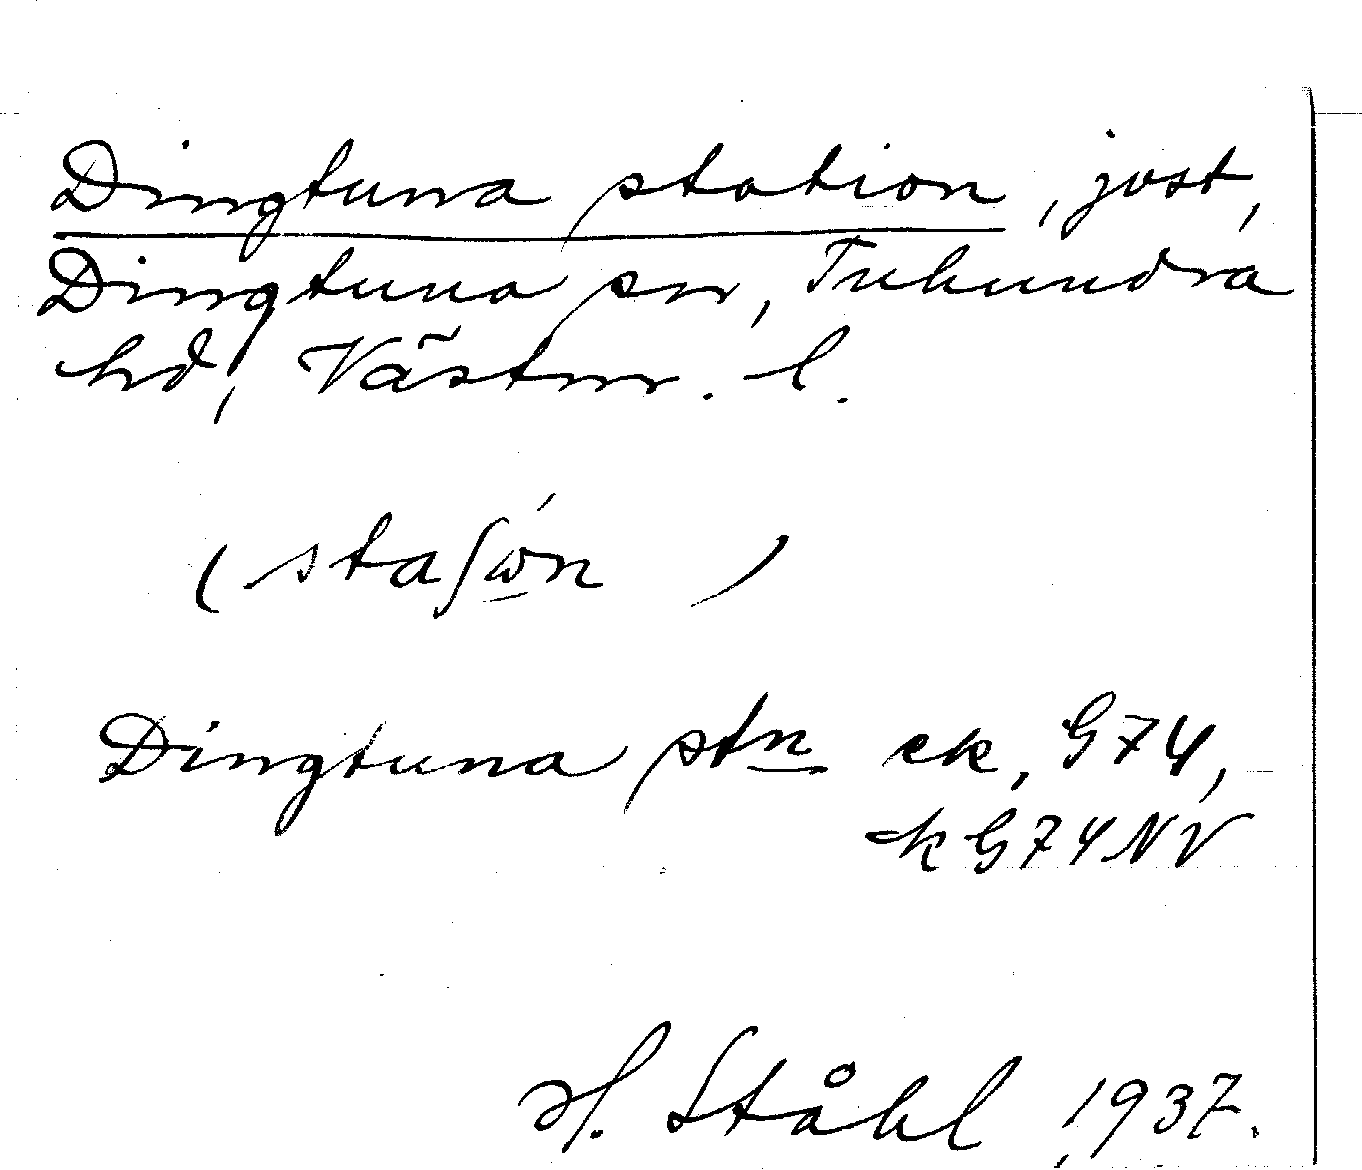 Dingtuna station, jvst,
Dingtuna sn, Tuhundra
hd, Västm. l.
(staʃώn )
Dingtuna stn ek, G74,
ek G74NV
H. Ståhl 1937.